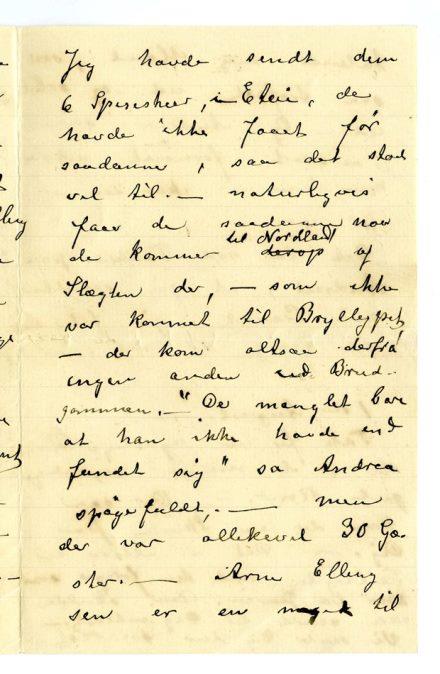 Jeg havde sendt dem
6 Spiseskeer, i Etui, de
havde ikke faaet før
saadanne, saa det stod
vel til. — naturligvis
faar de saadanne naar
de kommer til Nordland derop af
Slægten der, — som ikke
var kommet til Bryllypet,
— der kom altsaa derfra
ingen anden end Brud-
gommen. — "De manglet bare
at han ikke havde end
fundet sig" sa Andrea
spøgefuldt, — men
der var allikevel 30 Gæ-
ster. — Arne Elling
sen er en meget til